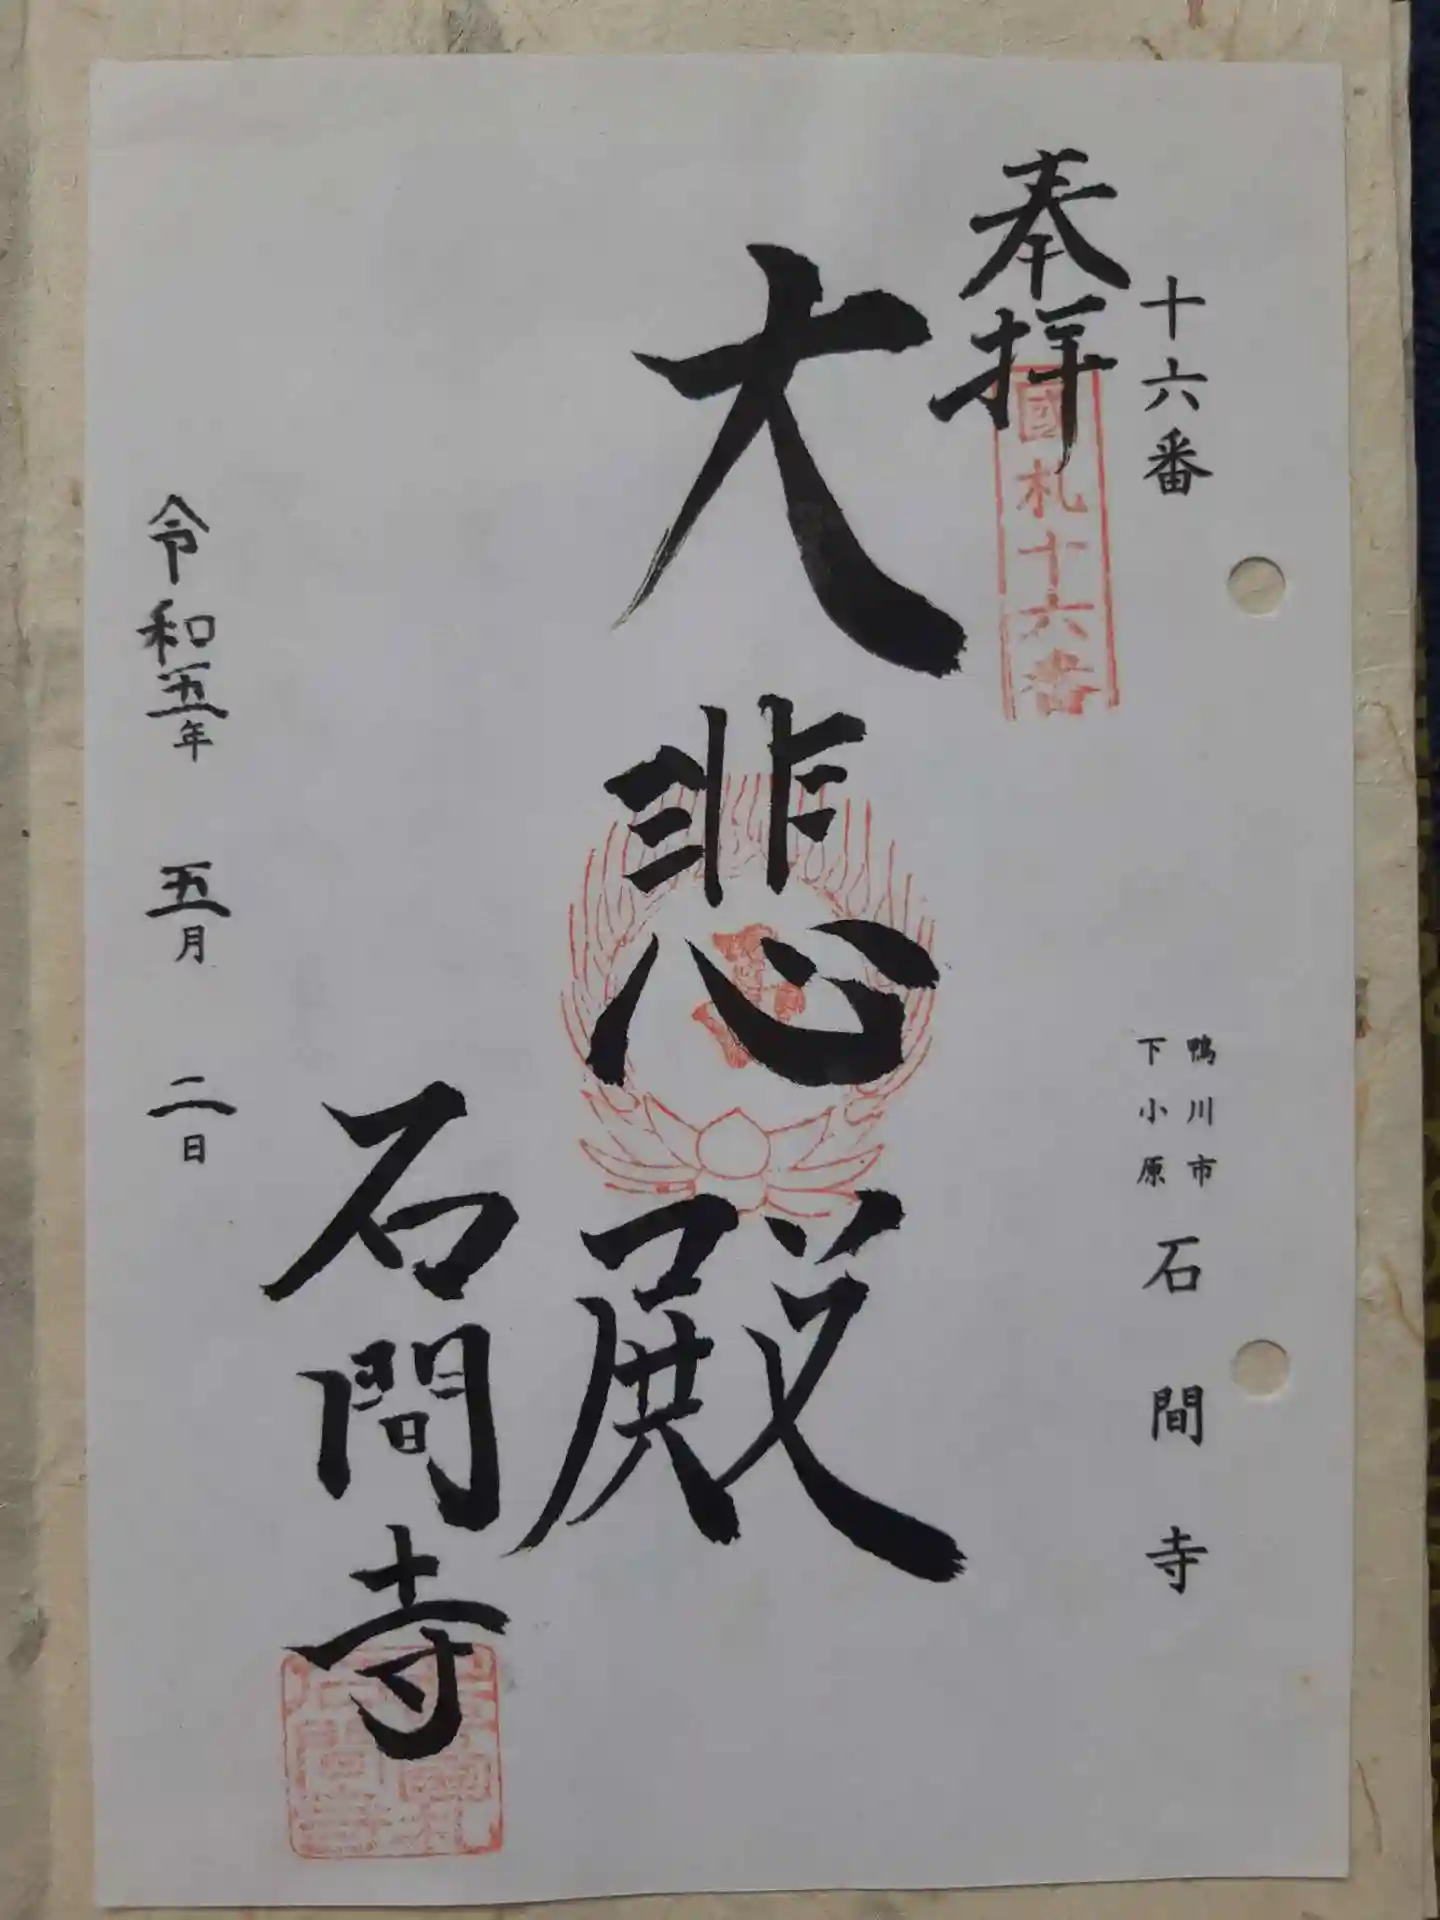 十六番
鴨川市
下小原
石間寺
奉拝
國札十六番
大悲殿
石間寺
令和五年 五月 二日